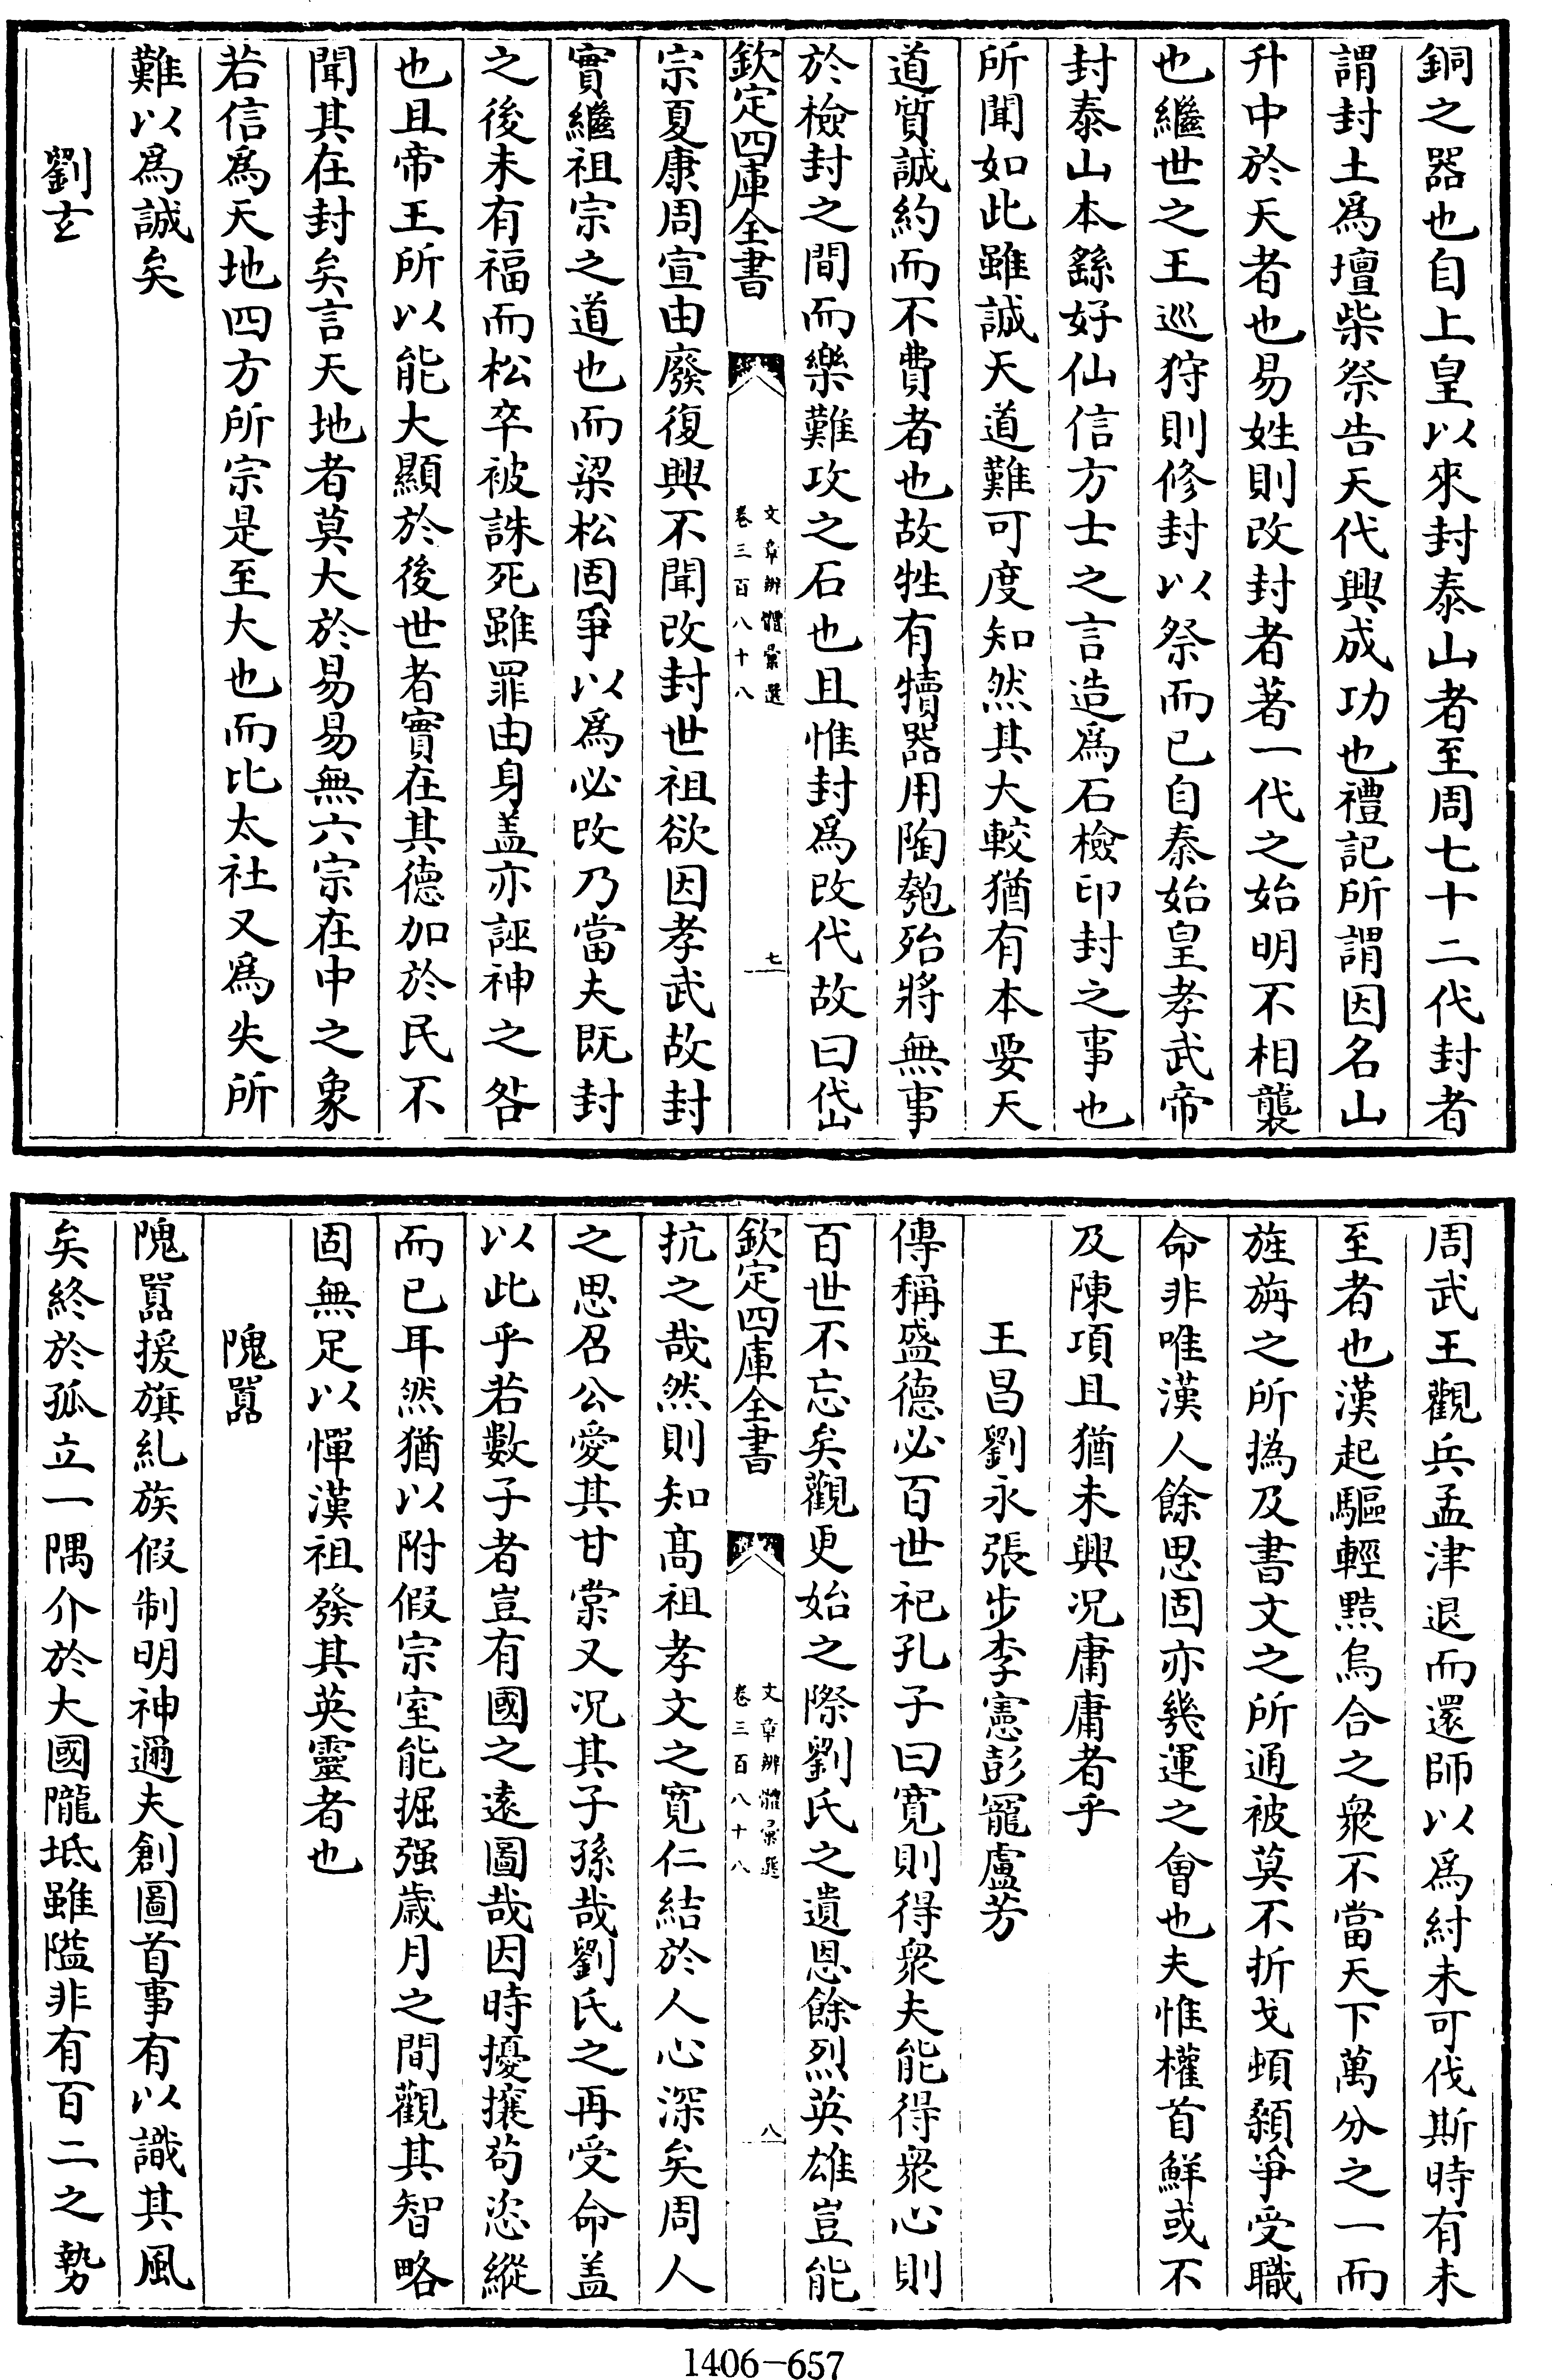 銅之器也自上皇以來封泰山者至周七十二代封者
謂封土爲壇柴祭告天代興成功也禮記所謂因名山
升中於天者也易姓則改封者著一代之始明不相襲
也繼世之王巡狩則修封以祭而已自泰始皇孝武帝
封泰山本繇好仙信方士之言造爲石檢印封之事也
所聞如此雖誠天道難可度知然其大較猶有本要天
道質誠約而不費者也故牲有犢器用陶匏殆將無事
於檢封之間而樂難攻之石也且惟封爲改代故曰岱
欽定四庫全書
文章辨體彙選
卷三百八十八
七
宗夏康周宣由廢復興不聞改封世祖欲因孝武故封
實繼祖宗之道也而梁松固爭以爲必改乃當夫既封
之後未有福而松卒被誅死雖罪由身盖亦誣神之咎
也且帝王所以能大顯於後世者實在其德加於民不
聞其在封矣言天地者莫大於易易無六宗在中之象
若信爲天地四方所宗是至大也而比太社又爲失所
難以爲誠矣
劉玄
周武王觀兵孟津退而還師以爲紂未可伐斯時有未
至者也漢起驅輕黠烏合之衆不當天下萬分之一而
旌旃之所撝及書文之所通被莫不折戈頓顙爭受職
命非唯漢人餘思固亦幾運之會也夫惟權首鮮或不
及陳項且猶未興况庸庸者乎
王昌劉永張步李憲彭寵盧芳
傳稱盛德必百世祀孔子曰寛則得衆夫能得衆心則
百世不忘矣觀更始之際劉氏之遺恩餘烈英雄豈能
欽定四庫全書
文章辨體彙選
卷三百八十八
八
抗之哉然則知髙祖孝文之寛仁結於人心深矣周人
之思召公愛其甘棠又况其子孫哉劉氏之再受命盖
以此乎若數子者豈有國之遠圖哉因時擾攘茍恣縱
而已耳然猶以附假宗室能掘强歲月之間觀其智略
固無足以憚漢祖發其英靈者也
隗囂
隗囂援旗糺族假制明神邇夫創圖首事有以識其風
矣終於孤立一隅介於大國隴坻雖隘非有百二之勢
1406-657